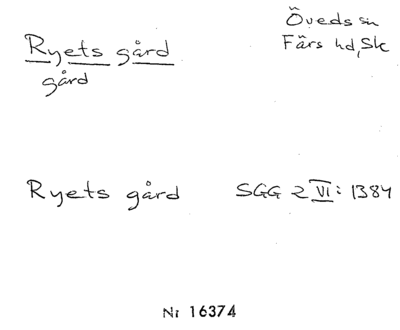 Ryets gård
gård
Öveds sn
Färs hd, Sk
Ryets gård SGG 2 VI: 1384
Ni 16374